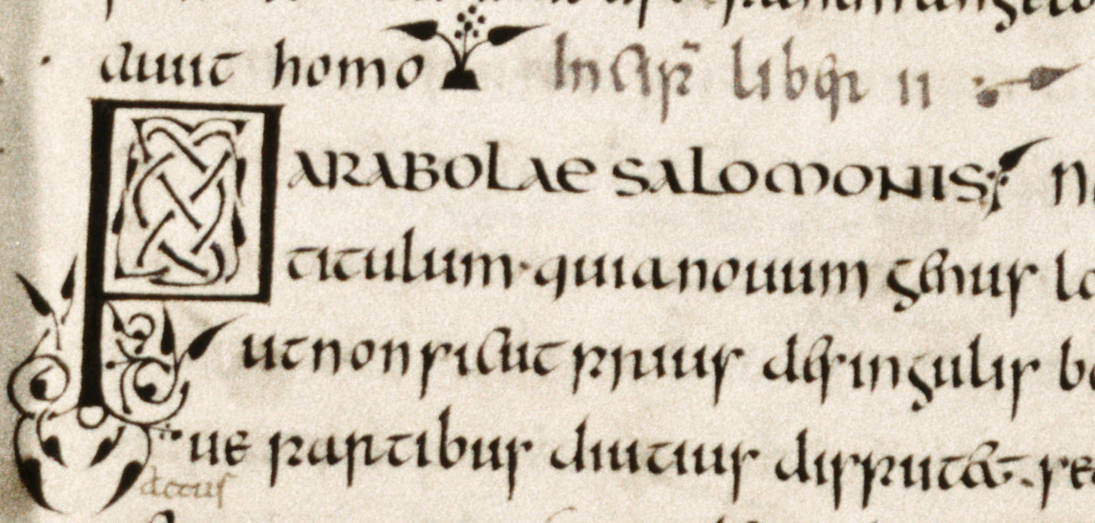 homo Incip liber II
PARABOLAE SALOMONIS; N
titulum · quia nouum genus lo
ut non sicut prius de singulis bo
ue partibus diutius disputet. se